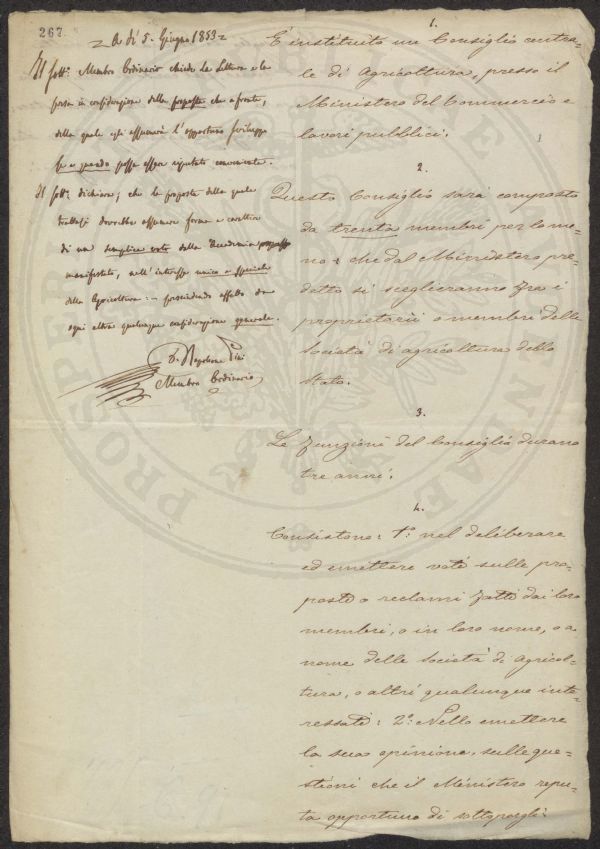 267
A dì 5. Giugno 1853
Il sott.° Membro Ordinario chiede la Lettura e la
presa in considerazione della proposta che a fronte,
della quale egli assumerà l'opportuno sviluppo
se e quando possa esser riputato conveniente.
Il sott.° dichiara, che la proposta della quale
trattasi dovrebbe assumere forma e carattere
di un semplice voto dalla Accademia
manifestato, nell'interesse unico e speciale
della Agricoltura: prescindendo affatto da
ogni altra qualunque considerazione generale.
D.r Napoleone Pini
Membro Ordinario
1.
È instituito un Consiglio centra-
le di Agricoltura, presso il
Ministero del Commercio e
lavori pubblici.
2.
Questo Consiglio sarà composto
da trenta membri per lo me-
no: che dal Ministero pre-
detto si sceglieranno fra i
proprietarii o membri delle
Società di agricoltura dello
Stato.
3.
Le funzioni del Consiglio durano
tre anni.
4.
Consistono: 1.° nel deliberare
ed emettere voti sulle pro-
poste o reclami fatti dai loro
membri, o in loro nome, o a
nome delle Società di Agricol-
tura, o altri qualunque inte-
ressati: 2.° Nello emettere
la sua opinione, sulle que-
stioni che il Ministero repu-
ta opportuno di sottoporgli:
PROSPERITATI PUBLICAE AUGENDAE